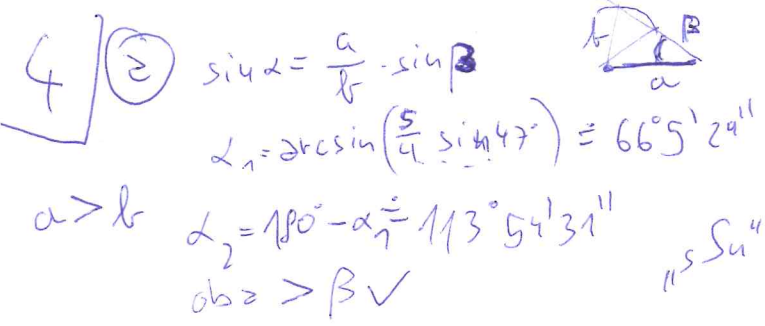 4 2 sin α = a/b · sin β
b β a
α₁ = arcsin(5/4 sin 47°) ≐ 66°5'29"
a > b α₂ = 180° - α₁ ≐ 113°54'31"
oba > β ✓ „sSu“